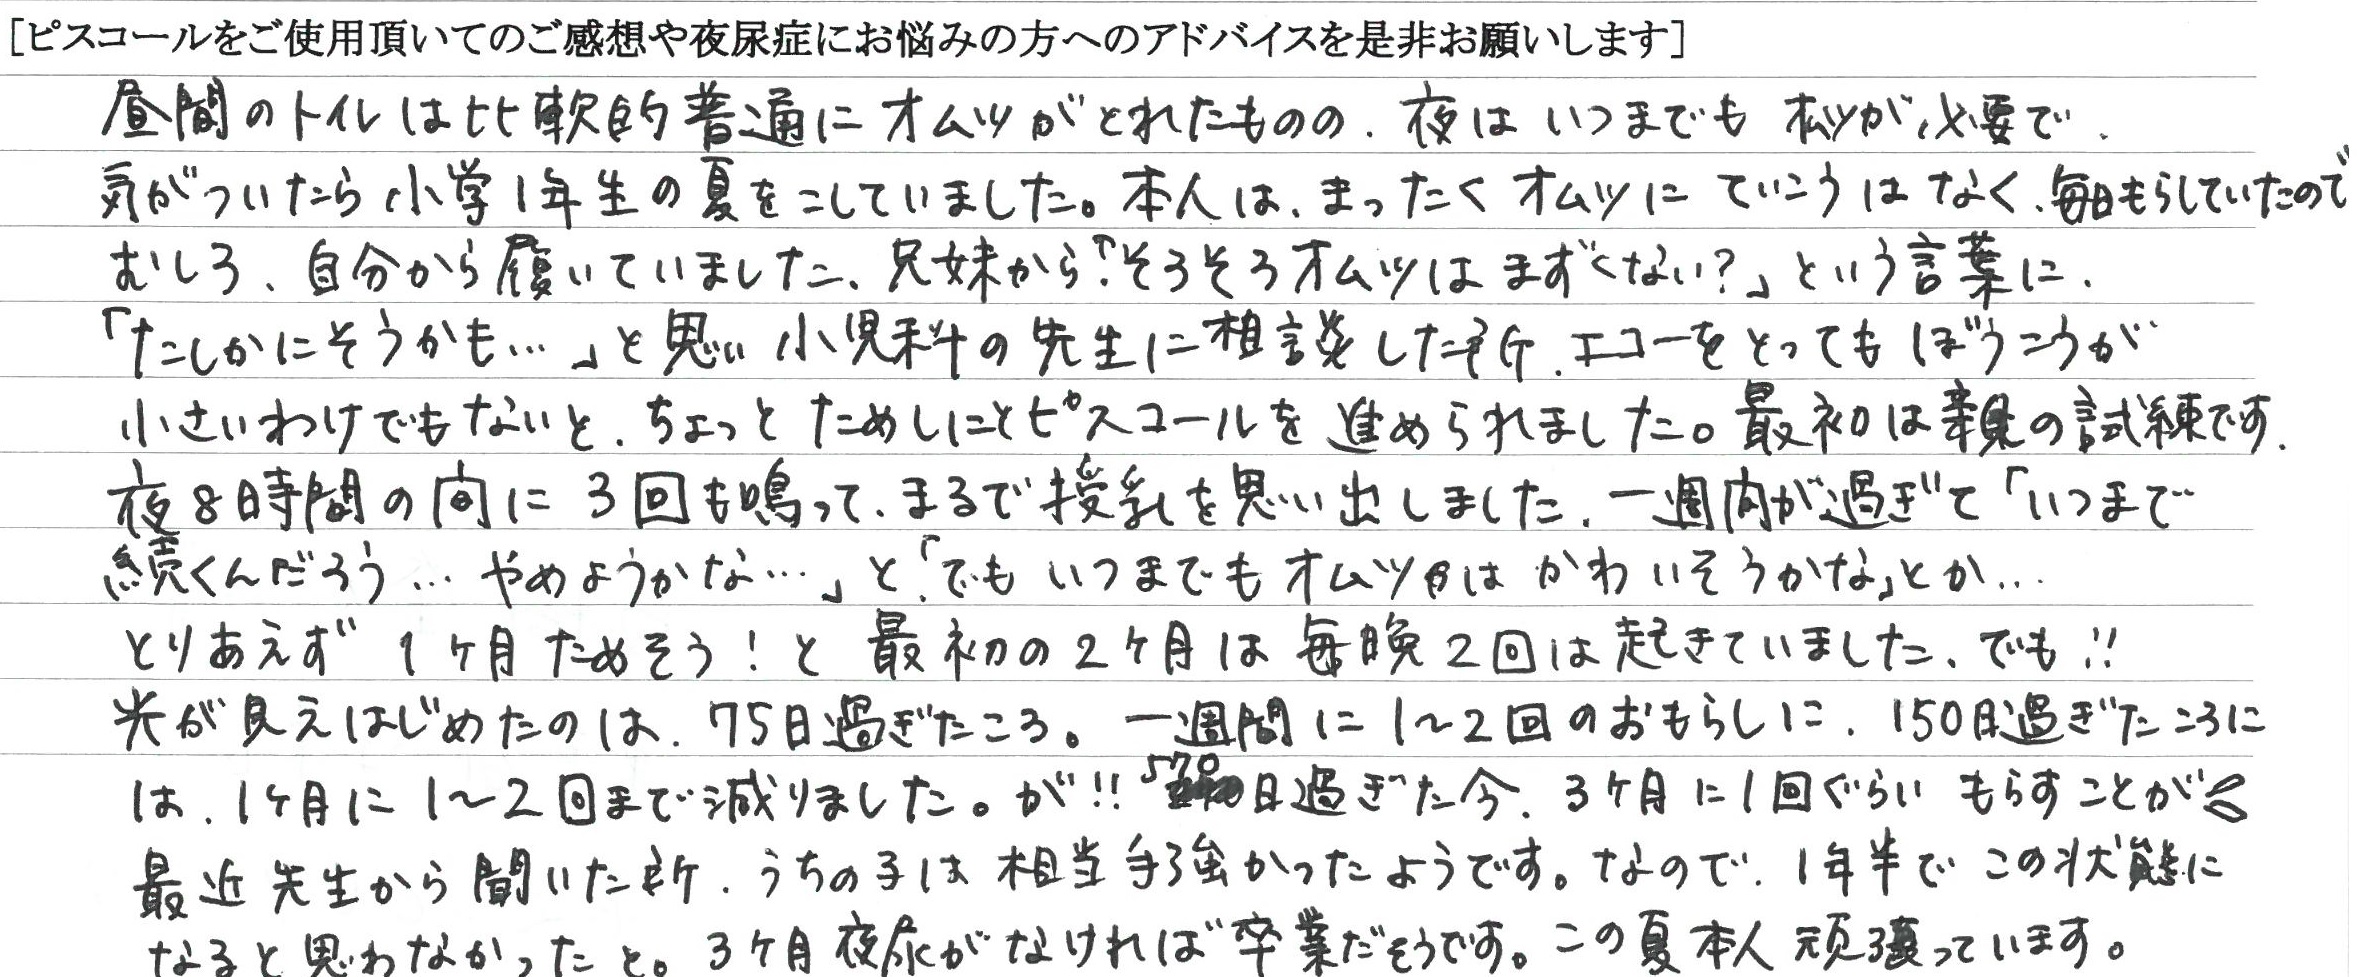 [ピスコールをご使用頂いてのご感想や夜尿症にお悩みの方へのアドバイスを是非お願いします]
昼間のトイレは比較的普通にオムツがとれたものの、夜はいつまでもオムツが必要で、
気がついたら小学1年生の夏をこしていました。本人は、まったくオムツにていこうはなく、毎日もらしていたので
むしろ、自分から履いていました、兄妹から「そろそろオムツはまずくない?」という言葉に、
「たしかにそうかも…」と思い小児科の先生に相談した所、エコーをとってもぼうこうが
小さいわけでもないと、ちょっとためしにとピスコールを進められました。最初は親の試練です、
夜8時間の間に3回も鳴って、まるで授乳を思い出しました、一週間が過ぎて「いつまで
続くんだろう…やめようかな…」と「でもいつまでもオムツはかわいそうかな」とか…
とりあえず1ヶ月ためそう!と最初の2ヶ月は毎晩2回は起きていました、でも!!
光が見えはじめたのは、75日過ぎたころ。一週間に1〜2回のおもらしに、150日過ぎたころに
は、1ヶ月に1〜2回まで減りました。が!!570日過ぎた今、3ヶ月に1回ぐらいもらすことが
最近先生から聞いた所、うちの子は相当手強かったようです。なので、1年半でこの状態に
なると思わなかったと。3ヶ月夜尿がなければ卒業だそうです。この夏本人頑張っています。